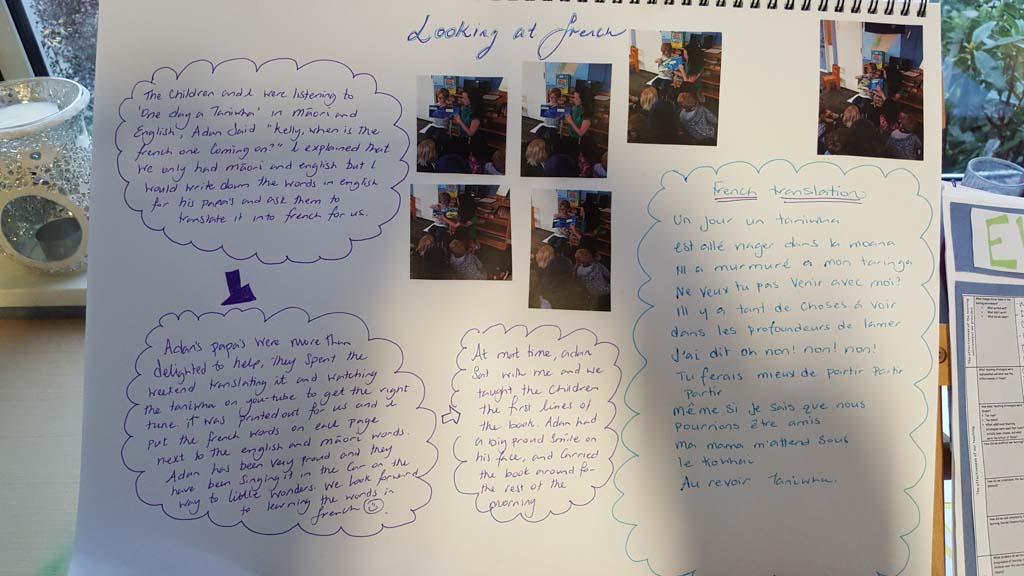 Looking at french
The Children and I were listening to
'One day a Taniwha' in māori and
English, Adan said "Kelly, when is the
french one coming on?" I explained that
we only had māori and english but I
would write down the words in english
for his papa's and ask them to
translate it into french for us.
Adan's papa's were more than
delighted to help, They spent the
weekend translating it and watching
the taniwha on you-tube to get the right
tune. it was printed out for us and I
put the french words on each page
next to the english and māori words.
Adan has been very proud and they
have been singing it in the car on the
way to little wonders. We look forward
to learning the words in
french
At mat time, adan
Sat with me and we
taught the children
the first lines of
the book. Adan had
a big proud smile on
his face, and carried
the book around for
the rest of the
morning
French translation
Un jour un taniwha
est aillé nager dans la moana
Ill a murmuré a mon taringa
Ne veux tu pas venir avec moi?
Ill y a tant de choses á voir
dans les profoundeurs de lamer
J'ai dit oh non! non! non!
Tu ferais mieux de partir Partir
Partir
même si je sais que nous
pourrions être amis
ma mama m'attend sous
le Kowhai
Au revoir Taniwha.
E